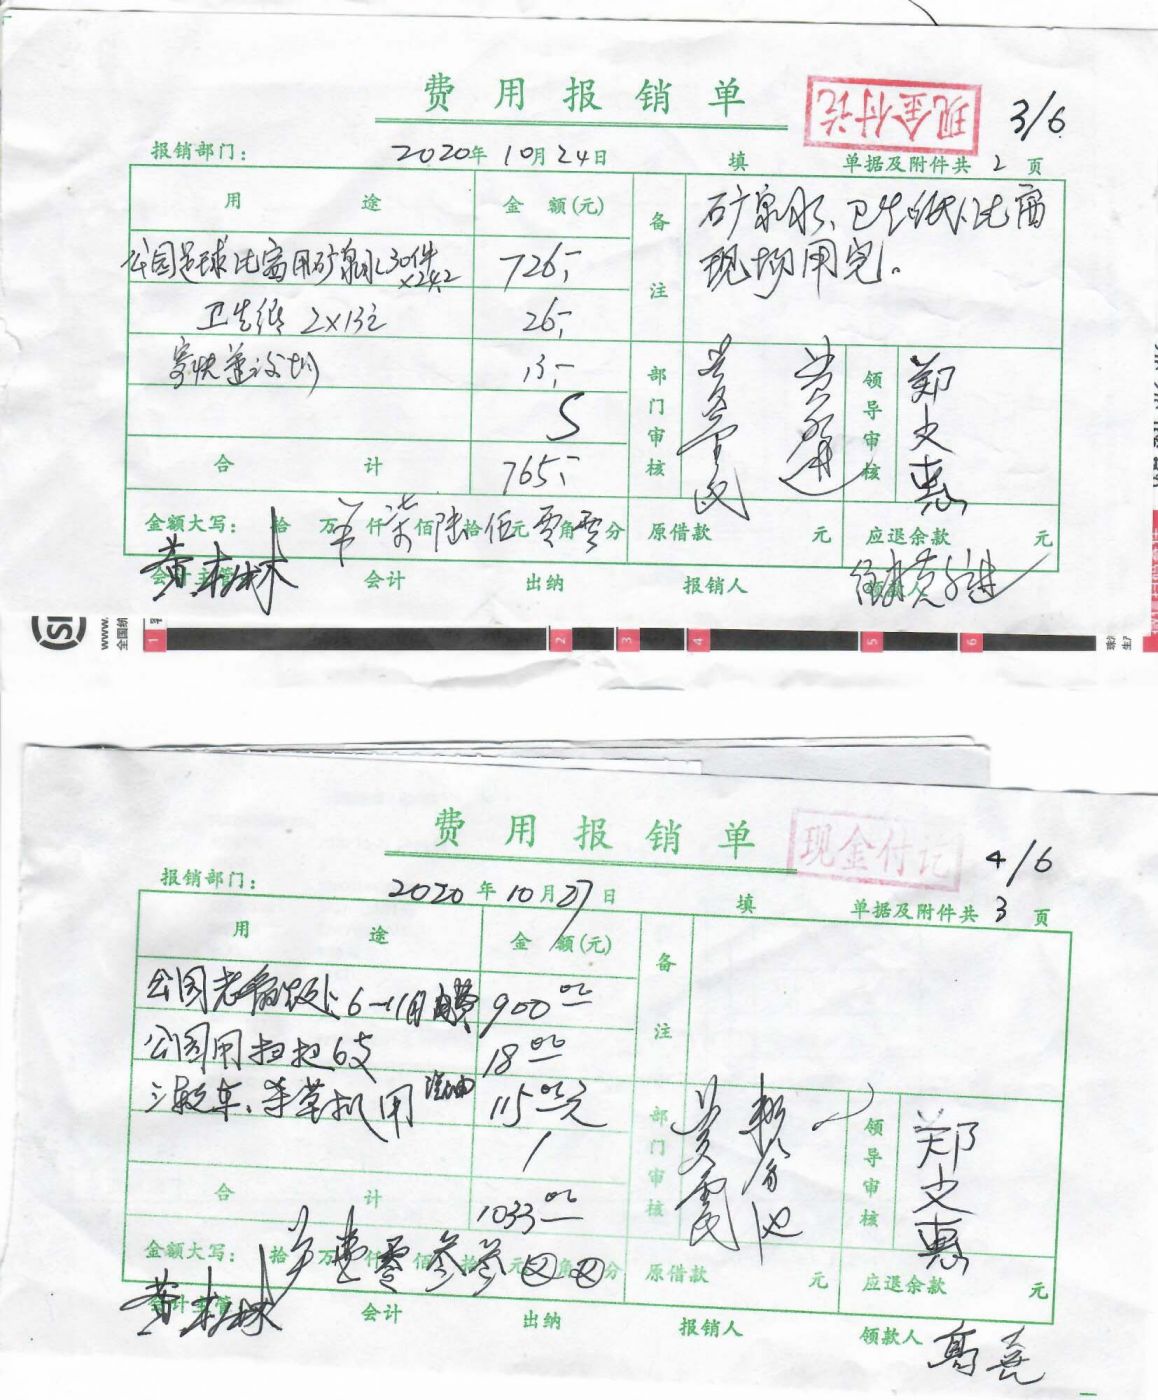 费用报销单
现金付讫
3/6
报销部门：
2020年10月24日
填
单据及附件共2页
用途
金额(元)
备注
矿泉水、卫生纸、比赛
现场用完。
公园足球比赛用矿泉水30件
×24.2
726,-
卫生纸 2×13元
26,-
寄快递
13,-
合计
765,-
部门审核
领导审核
郑文惠
金额大写：拾万仟柒佰陆拾伍元零角零分
原借款 元
应退余款 元
黄
会计主管
会计
出纳
报销人
SF
www.
全国
1 2 3 4 5 6
费用报销单
现金付讫
4/6
报销部门：
2020年10月27日
填
单据及附件共3页
用途
金额(元)
备注
公园 6-11月 费
900.00
公园用扫把6支
18.00
三轮车、手草机用汽油
115.00元
合计
1033.00
部门审核
领导审核
郑文惠
金额大写：拾万壹仟零佰叁拾叁元⊗角⊗分
原借款 元
应退余款 元
黄
会计主管
会计
出纳
报销人
领款人